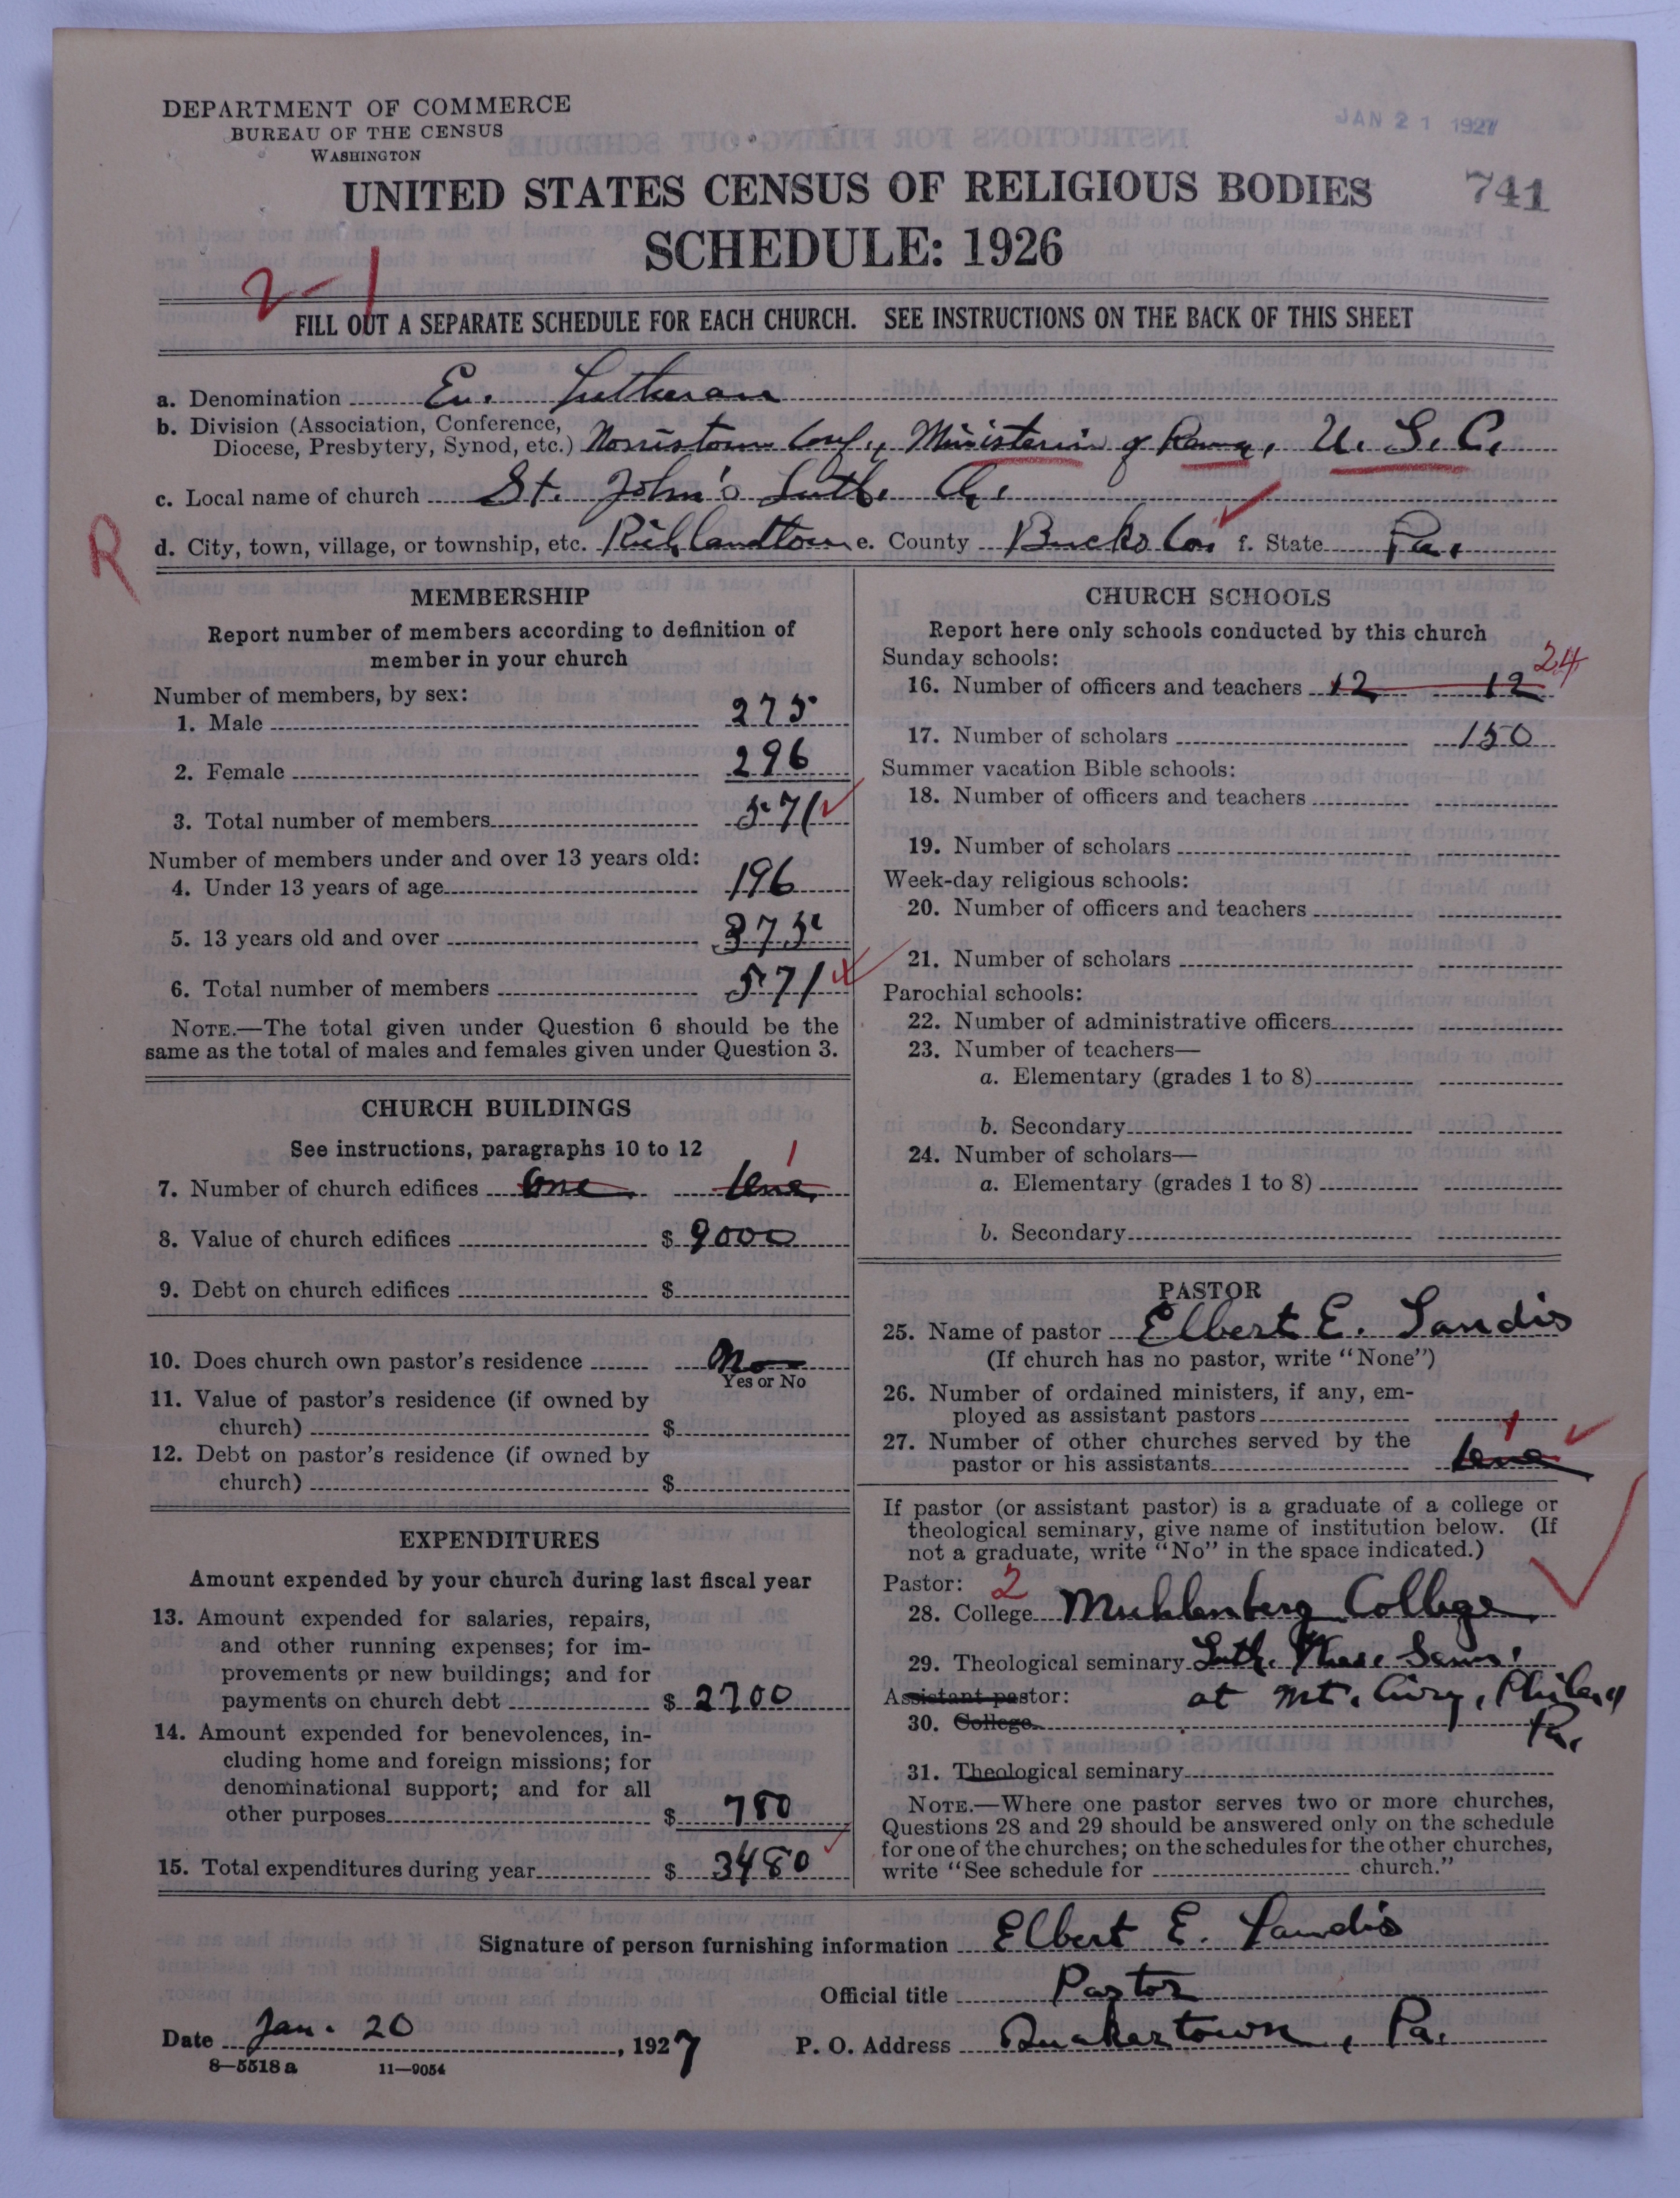 DEPARTMENT OF COMMERCE
BUREAU OF THE CENSUS
WASHINGTON
JAN 21 1927
UNITED STATES CENSUS OF RELIGIOUS BODIES
741
SCHEDULE: 1926
2-1
FILL OUT A SEPARATE SCHEDULE FOR EACH CHURCH. SEE INSTRUCTIONS ON THE BACK OF THIS SHEET
a. Denomination Ev. Lutheran
b. Division (Association, Conference,
Diocese, Presbytery, Synod, etc.) Norristown Conf., Ministerium of Penna, U. L. C.
c. Local name of church St. John's Luth. Ch.
R
d. City, town, village, or township, etc. Richlandtown e. County Bucks Co. f. State Pa.
MEMBERSHIP
Report number of members according to definition of
member in your church
Number of members, by sex:
1. Male 275
2. Female 296
3. Total number of members 571
Number of members under and over 13 years old:
4. Under 13 years of age 196
5. 13 years old and over 375
6. Total number of members 571
NOTE.—The total given under Question 6 should be the
same as the total of males and females given under Question 3.
CHURCH BUILDINGS
See instructions, paragraphs 10 to 12
1
7. Number of church edifices One One
8. Value of church edifices $ 9000
9. Debt on church edifices $
10. Does church own pastor's residence No
Yes or No
11. Value of pastor's residence (if owned by
church) $
12. Debt on pastor's residence (if owned by
church) $
EXPENDITURES
Amount expended by your church during last fiscal year
13. Amount expended for salaries, repairs,
and other running expenses; for im-
provements or new buildings; and for
payments on church debt $ 2700
14. Amount expended for benevolences, in-
cluding home and foreign missions; for
denominational support; and for all
other purposes $ 780
15. Total expenditures during year $ 3480
CHURCH SCHOOLS
Report here only schools conducted by this church
Sunday schools:
24
16. Number of officers and teachers 12 12
17. Number of scholars 150
Summer vacation Bible schools:
18. Number of officers and teachers
19. Number of scholars
Week-day religious schools:
20. Number of officers and teachers
21. Number of scholars
Parochial schools:
22. Number of administrative officers
23. Number of teachers—
a. Elementary (grades 1 to 8)
b. Secondary
24. Number of scholars—
a. Elementary (grades 1 to 8)
b. Secondary
PASTOR
25. Name of pastor Elbert E. Landis
(If church has no pastor, write "None")
26. Number of ordained ministers, if any, em-
ployed as assistant pastors
1
27. Number of other churches served by the
pastor or his assistants One
If pastor (or assistant pastor) is a graduate of a college or
theological seminary, give name of institution below. (If
not a graduate, write "No" in the space indicated.)
Pastor: 2
28. College Muhlenberg College
29. Theological seminary Luth. Theo. Sem.
Assistant pastor: at Mt. Airy, Phila,
30. College Pa.
31. Theological seminary
NOTE.—Where one pastor serves two or more churches,
Questions 28 and 29 should be answered only on the schedule
for one of the churches; on the schedules for the other churches,
write "See schedule for church."
Signature of person furnishing information Elbert E. Landis
Official title Pastor
Date Jan. 20, 1927 P. O. Address Quakertown, Pa.
8—5518 a 11—9054